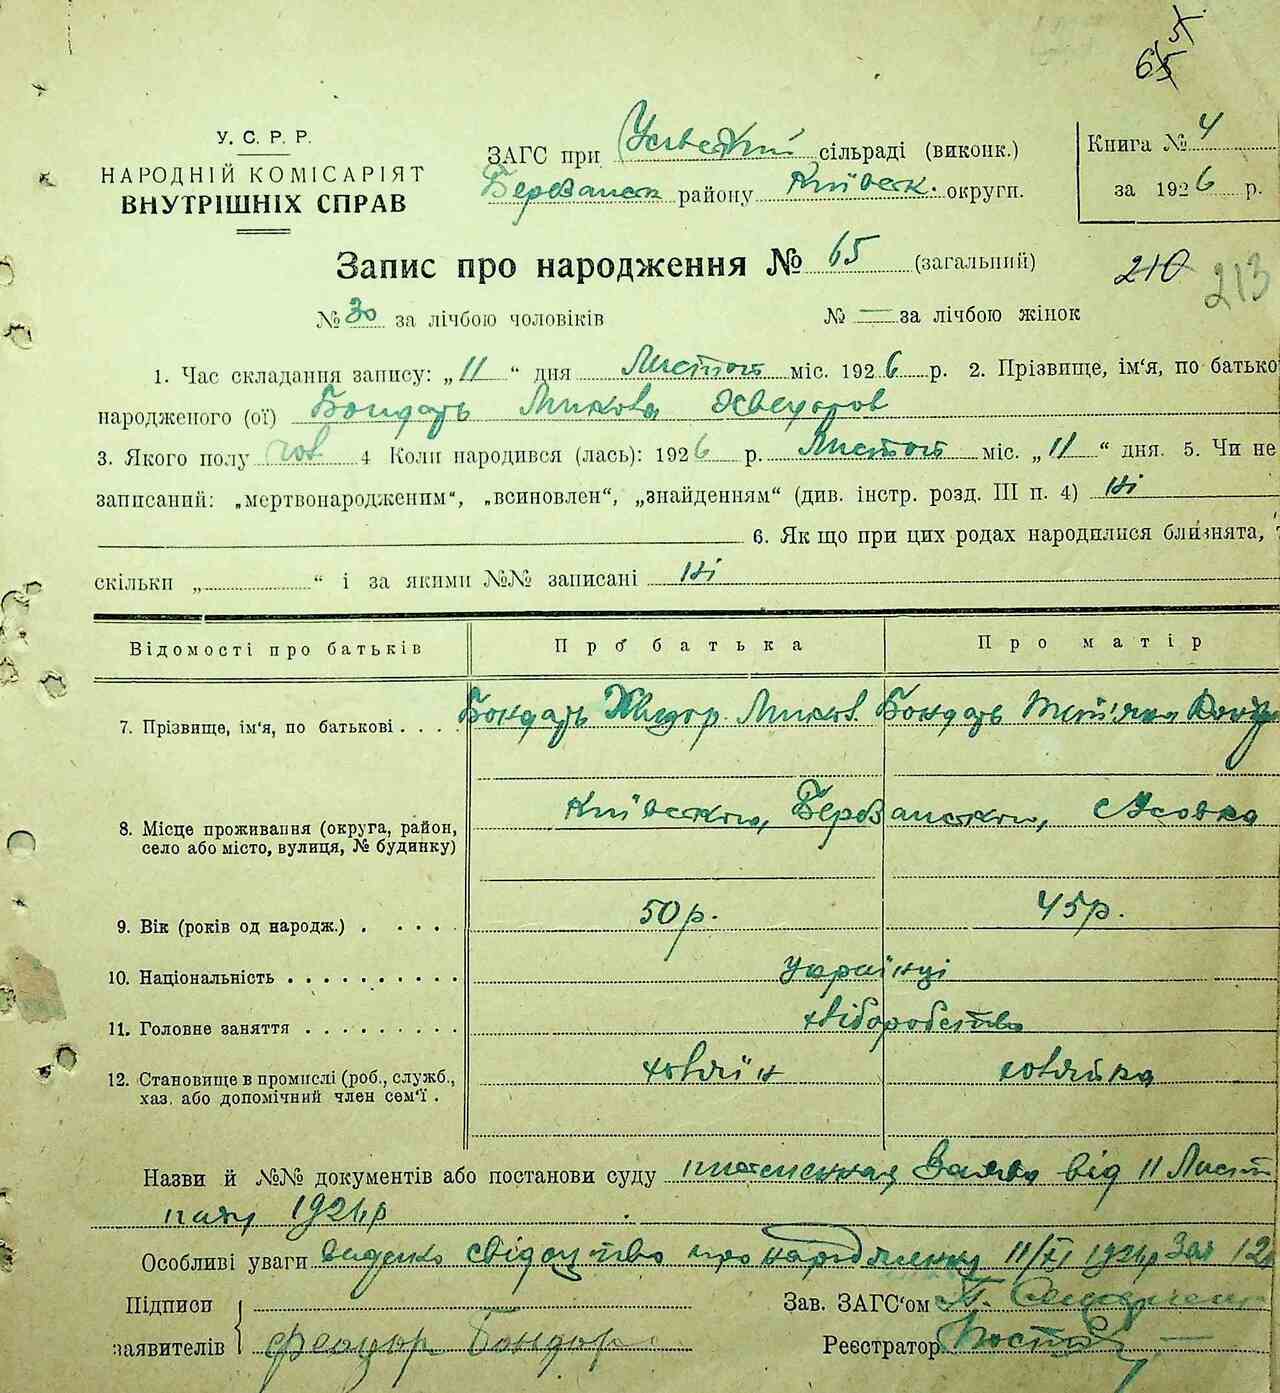 65
У. С. Р. Р.
НАРОДНІЙ КОМІСАРІЯТ
ВНУТРІШНІХ СПРАВ
ЗАГС при сільраді (виконк.)
Березанск району Київск. округи.
Книга № 4
за 1926 р.
Запис про народження № 65 (загальний)
210 213
№ 30 за лічбою чоловіків № — за лічбою жінок
1. Час складання запису: „11“ дня Листоп міс. 1926 р. 2. Прізвище, ім‘я, по батько
народженого (ої) Бондарь Микола
3. Якого полу чов 4 Коли народився (лась): 1926 р. Листоп міс. „11“ дня. 5. Чи не
записаний: „мертвонародженим“, „всиновлен“, „знайденням“ (див. інстр. розд. III п. 4) Ні
6. Як що при цих родах народилися близнята,
скільки „ “ і за якими №№ записані Ні
Відомості про батьків Про батька Про матір
7. Прізвище, ім‘я, по батькові . . . . Бондарь Микол. Бондарь
8. Місце проживання (округа, район, село або місто, вулиця, № будинку) Київской, Березанской, с Усовка
9. Вік (років од народж.) . . . . . 50 р. 45 р.
10. Національність . . . . . . . . . . Українці
11. Головне заняття . . . . . . . . . хліборобство
12. Становище в промислі (роб., служб., хаз. або допомічний член сем‘ї . хозяїн хозяйка
Назви й №№ документів або постанови суду заява від 11 Лист
паду 1926 р
Особливі уваги видано свідоцтво про народження 11/XI 1926 р за
Підписи
заявителів Бондар
Зав. ЗАГС‘ом
Реєстратор